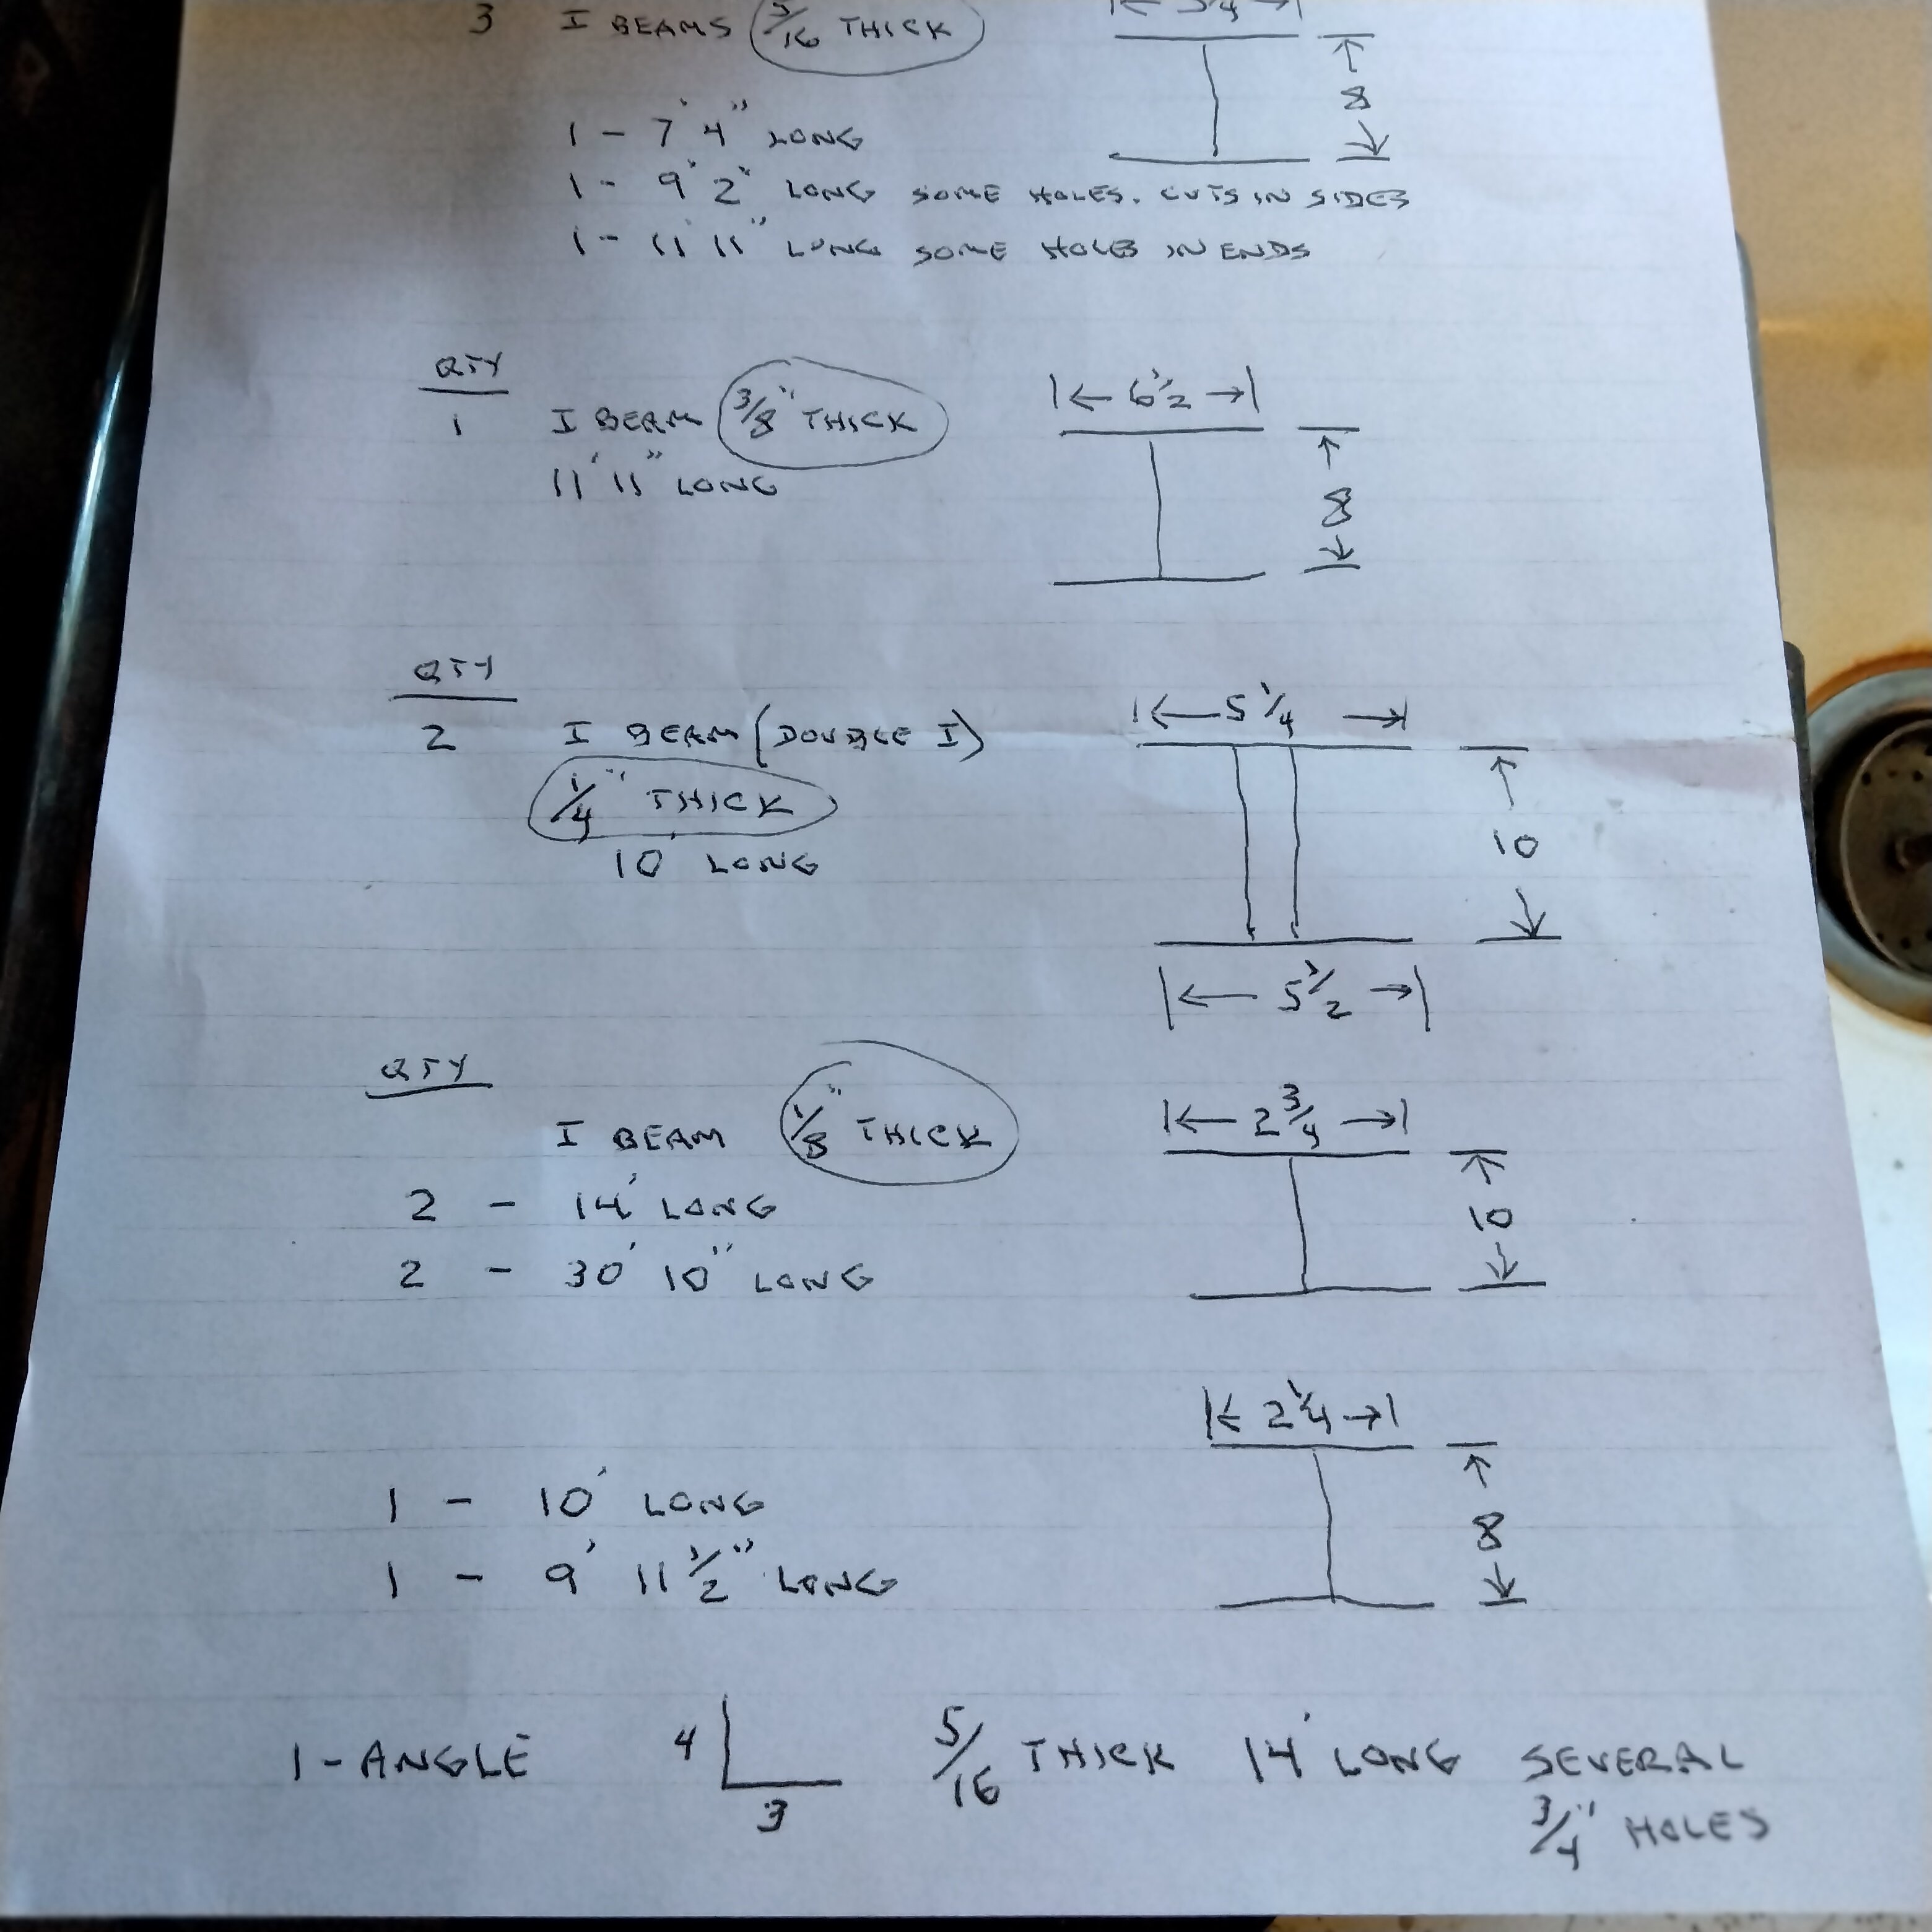 3 I BEAMS /16 THICK
8
1 - 7' 4" LONG
1 - 9' 2" LONG SOME HOLES. CUTS IN SIDES
1 - 11' 11" LONG SOME HOLES IN ENDS
QTY
1 I BEAM 3/8" THICK
11' 11" LONG
6 1/2
8
QTY
2 I BEAM (DOUBLE I)
1/4" THICK
10' LONG
5 1/4
10
5 1/2
QTY
I BEAM 1/8" THICK
2 - 14' LONG
2 - 30' 10" LONG
2 3/4
10
2 1/4
8
1 - 10' LONG
1 - 9' 11 1/2" LONG
1 - ANGLE 4 3 5/16 THICK 14' LONG SEVERAL
3/4" HOLES